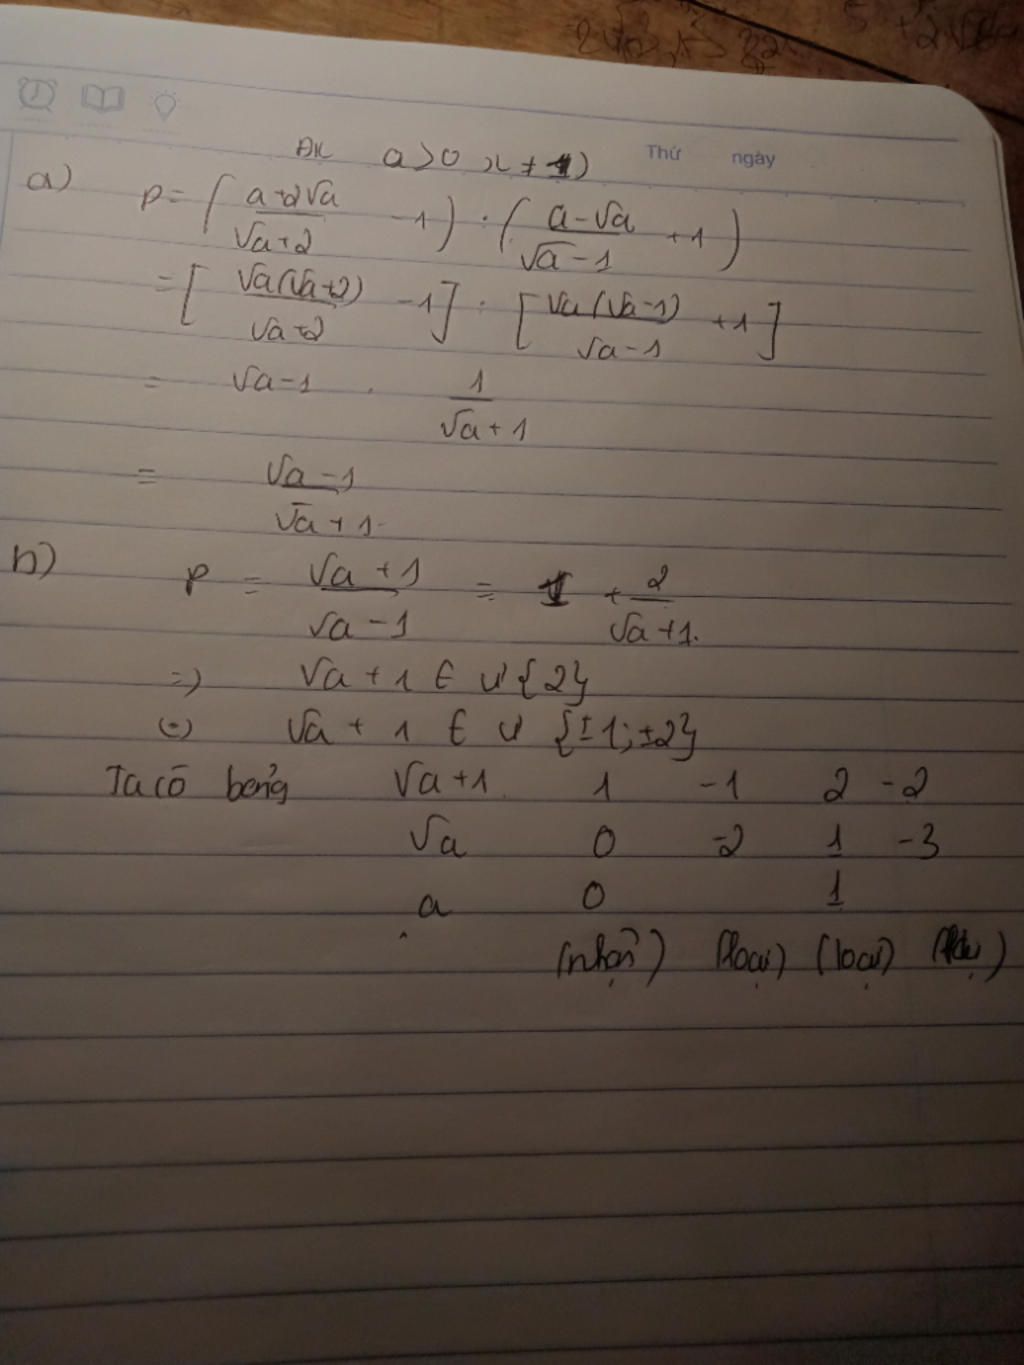 Thứ ngày
ĐK a>0 x ≠ 1)
a) P = ( a+2√a / √a+2 - 1 ) : ( a-√a / √a-1 + 1 )
= [ √a(√a+2) / √a+2 - 1 ] : [ √a(√a-1) / √a-1 + 1 ]
= √a-1 . 1 / √a+1
= √a-1 / √a+1
b) P = √a+1 / √a-1 = 1 + 2 / √a+1.
=> √a+1 ∈ Ư{2}
(=) √a+1 ∈ Ư {±1;±2}
Ta có bảng √a+1 1 -1 2 -2
√a 0 -2 1 -3
a 0 1
(nhận) (loại) (loại)